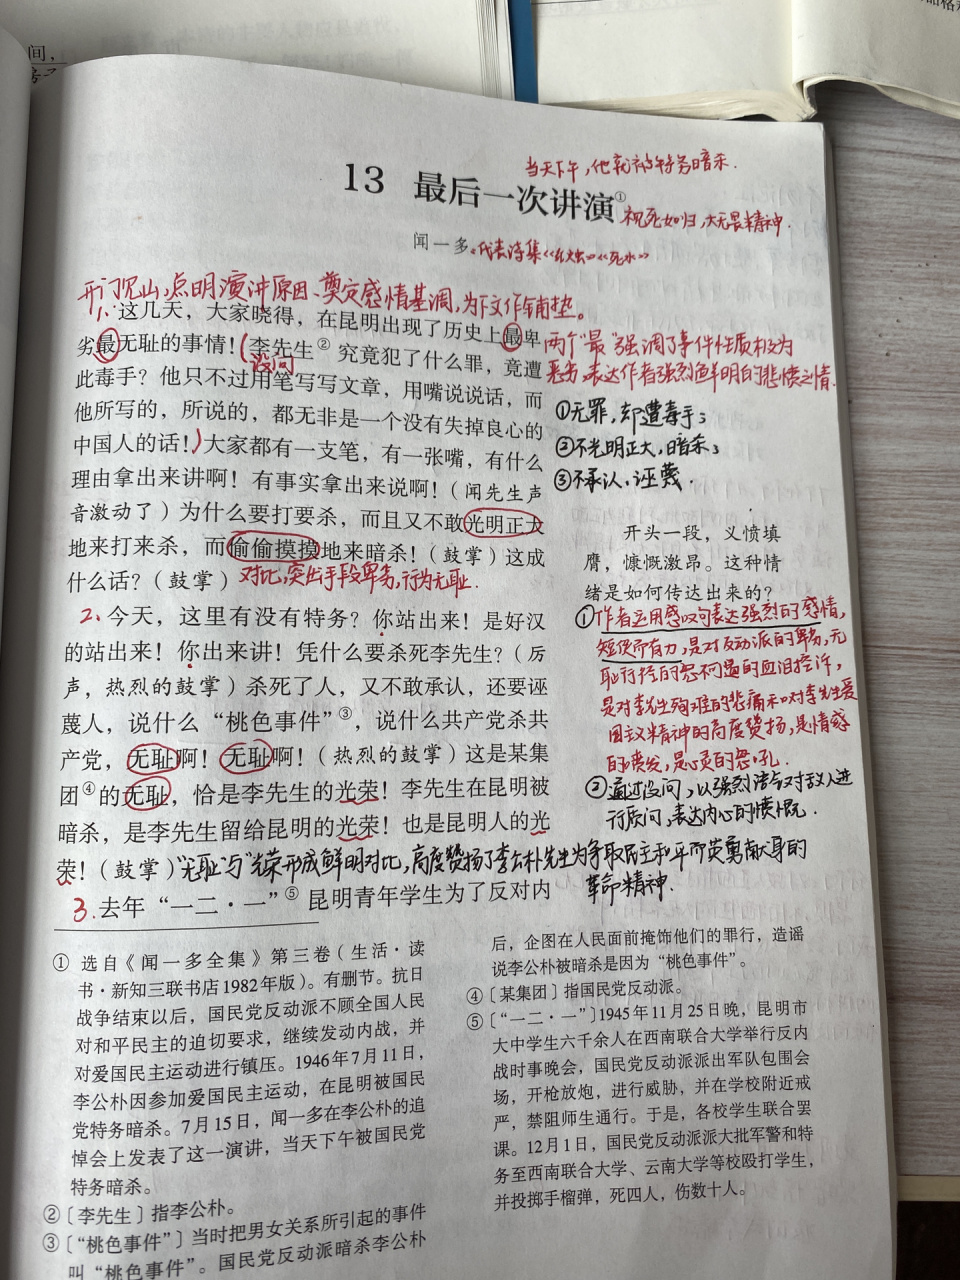 间，
当天下午，他就被特务暗杀．
13 最后一次讲演①
视死如归，大无畏精神．
闻一多
代表诗集《红烛》《死水》
开门见山，点明演讲原因、奠定感情基调，为下文作铺垫。
1.这几天，大家晓得，在昆明出现了历史上最卑
劣最无耻的事情！（李先生② 究竟犯了什么罪，竟遭
设问
此毒手？他只不过用笔写写文章，用嘴说说话，而
他所写的，所说的，都无非是一个没有失掉良心的
中国人的话！）大家都有一支笔，有一张嘴，有什么
理由拿出来讲啊！有事实拿出来说啊！（闻先生声
音激动了）为什么要打要杀，而且又不敢光明正大
地来打来杀，而偷偷摸摸地来暗杀！（鼓掌）这成
什么话？（鼓掌）
对比，突出手段卑劣，行为无耻．
两个“最”强调了事件性质极为
恶劣，表达作者强烈鲜明的悲愤之情．
①无罪，却遭毒手；
②不光明正大，暗杀；
③不承认，诬蔑．
开头一段，义愤填
膺，慷慨激昂。这种情
绪是如何传达出来的？
①作者运用感叹句表达强烈的感情，
短促而有力，是对反动派的卑劣，无
耻行径的怒不可遏的血泪控诉，
是对李先生殉难的悲痛和对李先生爱
国主义精神的高度赞扬，是情感
的喷发，是心灵的怒吼．
②通过设问，以强烈语气对敌人进
行质问，表达内心的愤慨．
2.今天，这里有没有特务？你站出来！是好汉
的站出来！你出来讲！凭什么要杀死李先生？（厉
声，热烈的鼓掌）杀死了人，又不敢承认，还要诬
蔑人，说什么“桃色事件”③，说什么共产党杀共
产党，无耻啊！无耻啊！（热烈的鼓掌）这是某集
团④的无耻，恰是李先生的光荣！李先生在昆明被
暗杀，是李先生留给昆明的光荣！也是昆明人的光
荣！（鼓掌）
“无耻”与“光荣”形成鲜明对比，高度赞扬了李公朴先生为争取民主和平而英勇献身的
革命精神．
3.去年“一二·一”⑤昆明青年学生为了反对内
① 选自《闻一多全集》第三卷（生活·读
书·新知三联书店1982年版）。有删节。抗日
战争结束以后，国民党反动派不顾全国人民
对和平民主的迫切要求，继续发动内战，并
对爱国民主运动进行镇压。1946年7月11日，
李公朴因参加爱国民主运动，在昆明被国民
党特务暗杀。7月15日，闻一多在李公朴的追
悼会上发表了这一演讲，当天下午被国民党
特务暗杀。
②〔李先生〕指李公朴。
③〔“桃色事件”〕当时把男女关系所引起的事件
叫“桃色事件”。国民党反动派暗杀李公朴
后，企图在人民面前掩饰他们的罪行，造谣
说李公朴被暗杀是因为“桃色事件”。
④〔某集团〕指国民党反动派。
⑤〔“一二·一”〕1945年11月25日晚，昆明市
大中学生六千余人在西南联合大学举行反内
战时事晚会，国民党反动派派出军队包围会
场，开枪放炮，进行威胁，并在学校附近戒
严，禁阻师生通行。于是，各校学生联合罢
课。12月1日，国民党反动派派大批军警和特
务至西南联合大学、云南大学等校殴打学生，
并投掷手榴弹，死四人，伤数十人。